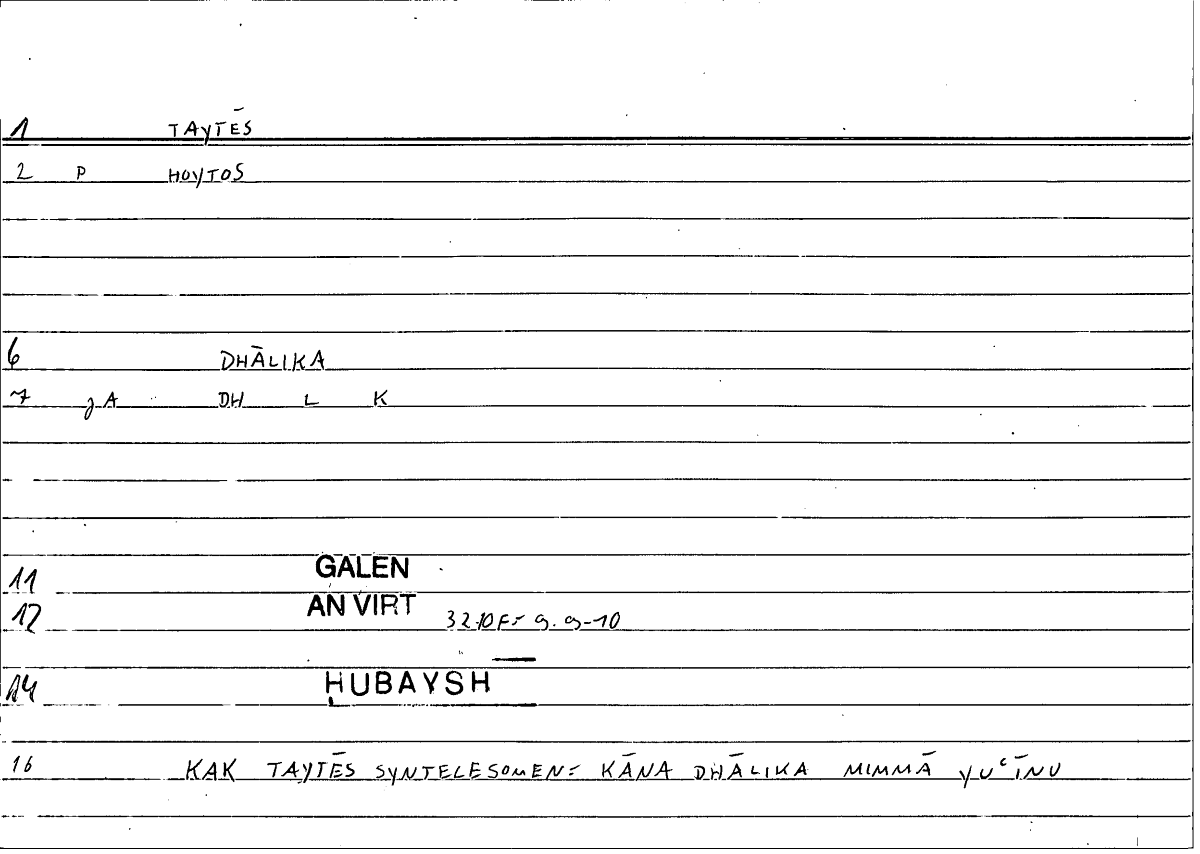 1 TAYTĒS
2 P HOYTOS
6 DHĀLIKA
7 JA DH L K
11 GALEN
12 AN VIRT 32.10 F- 9.9-10
14 HUBAYSH
16 KAK TAYTĒS SYNTELESOMEN= KĀNA DHĀLIKA MIMMĀ YUʿĪNU